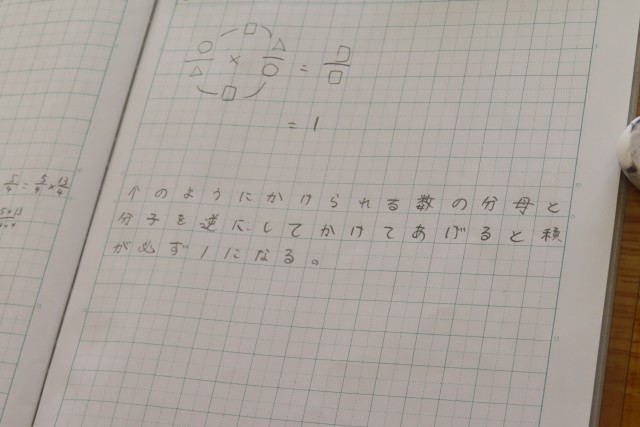 ○/△ × △/○ = □/□
= 1
↑のようにかけられる数の分母と
分子を逆にしてかけてあげると積
が必ず1になる。
5/4 = 5/4 × 13/4